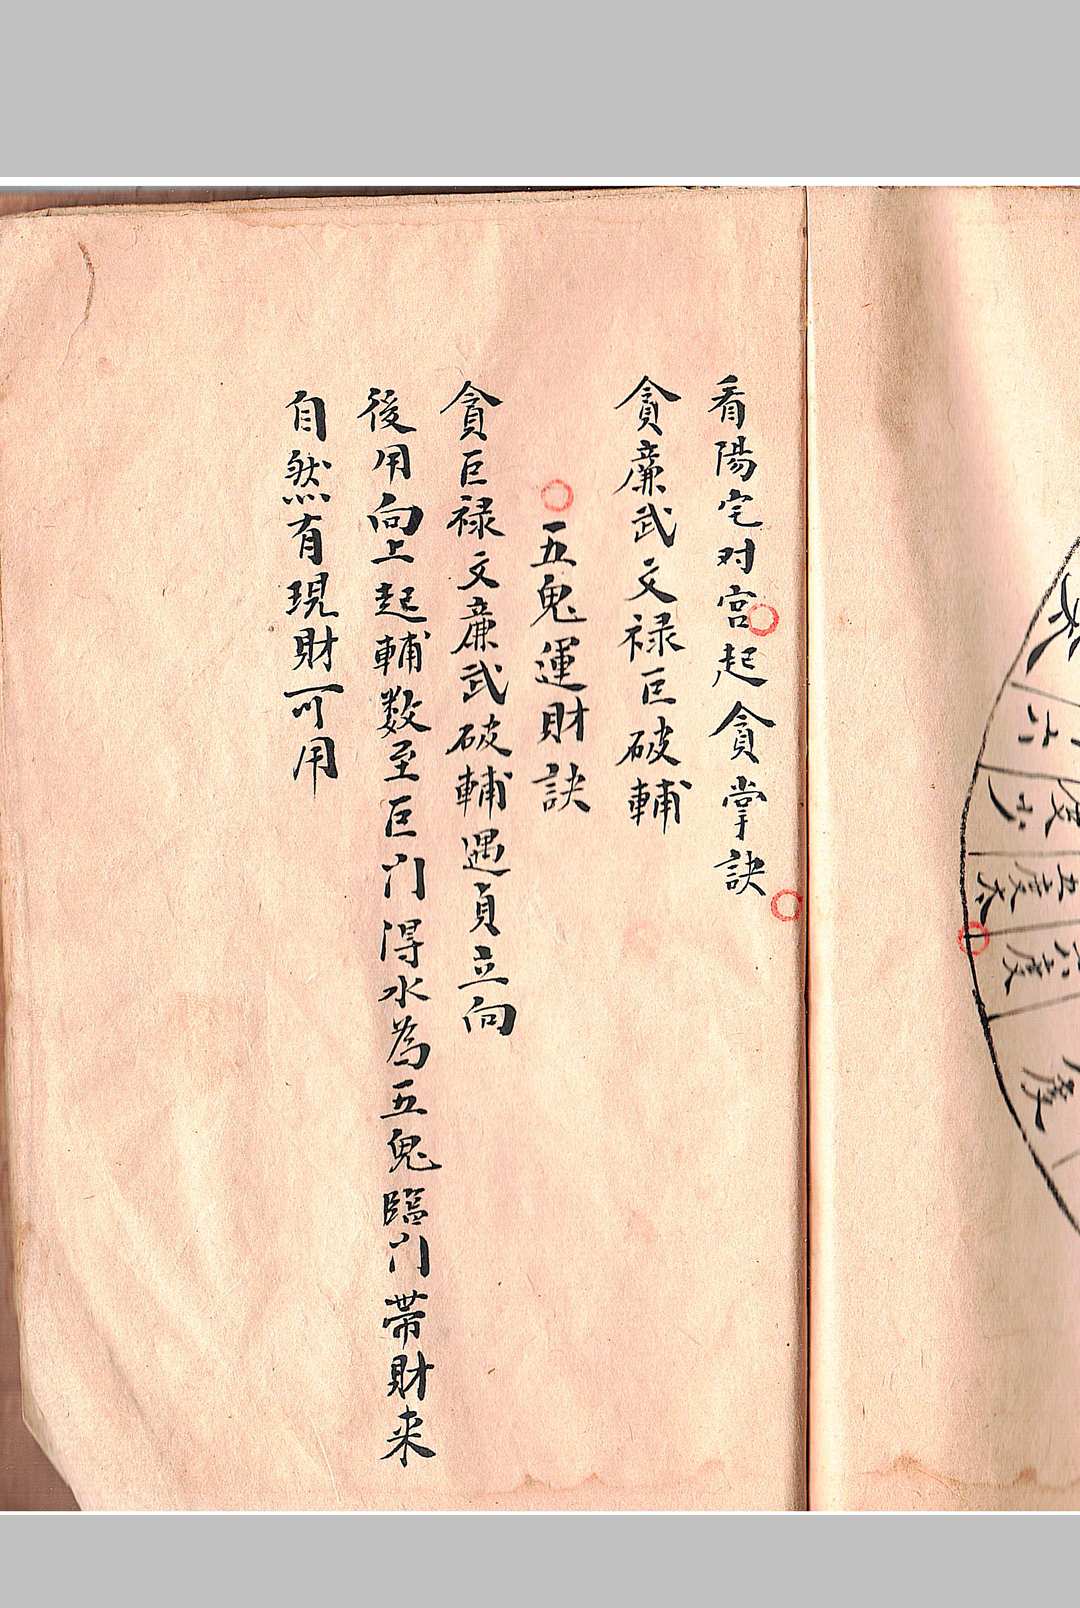 看陽宅对宫起貪掌訣
貪亷武文禄巨破輔
五鬼運財訣
貪巨禄文亷武破輔遇貞立向
後用向上起輔数至巨门得水為五鬼臨门帯財来
自然有現財可用